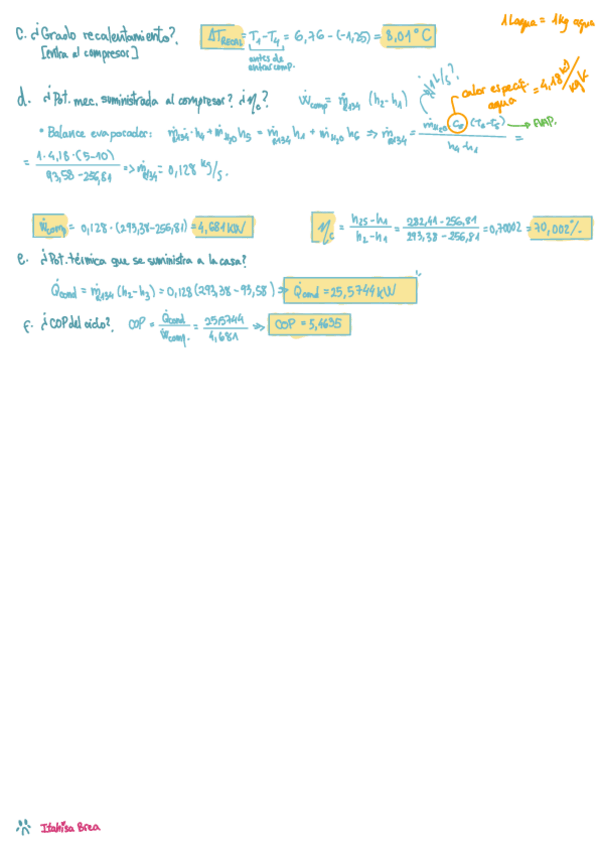 c. ¿Grado recalentamiento?. ΔT_RECAL = T₁-T₄ = 6,76 - (-1,25) = 8,01°C
1 Lagua = 1 kg agua
[entra al compresor]
antes de entrar comp.
d. ¿Pot. mec. suministrada al compresor? ¿η_c? Ẇcomp = ṁ_R134 (h₂-h₁)
calor específ. agua = 4,18 kJ/kg K
* Balance evaporador: ṁ_R134·h₄ + ṁ_H₂O h₅ = ṁ_R134 h₁ + ṁ_H₂O h₆ => ṁ_R134 = ṁ_H₂O C_e (T₆-T₅) / h₄-h₁ =
EVAP.
= 1·4,18·(5-10) / 93,58-256,81 => ṁ_R134 = 0,128 kg/s.
Ẇcomp = 0,128·(293,38-256,81) = 4,681 KW
η_c = h₂s-h₁ / h₂-h₁ = 282,41-256,81 / 293,38-256,81 = 0,70002 = 70,002%.
e. ¿Pot. térmica que se suministra a la casa?
Q̇cond = ṁ_R134 (h₂-h₃) = 0,128 (293,38-93,58) => Q̇cond = 25,5744 KW
f. ¿COP del ciclo?. COP = Q̇cond / Ẇcomp. = 25,5744 / 4,681 => COP = 5,4635
Itahisa Brea